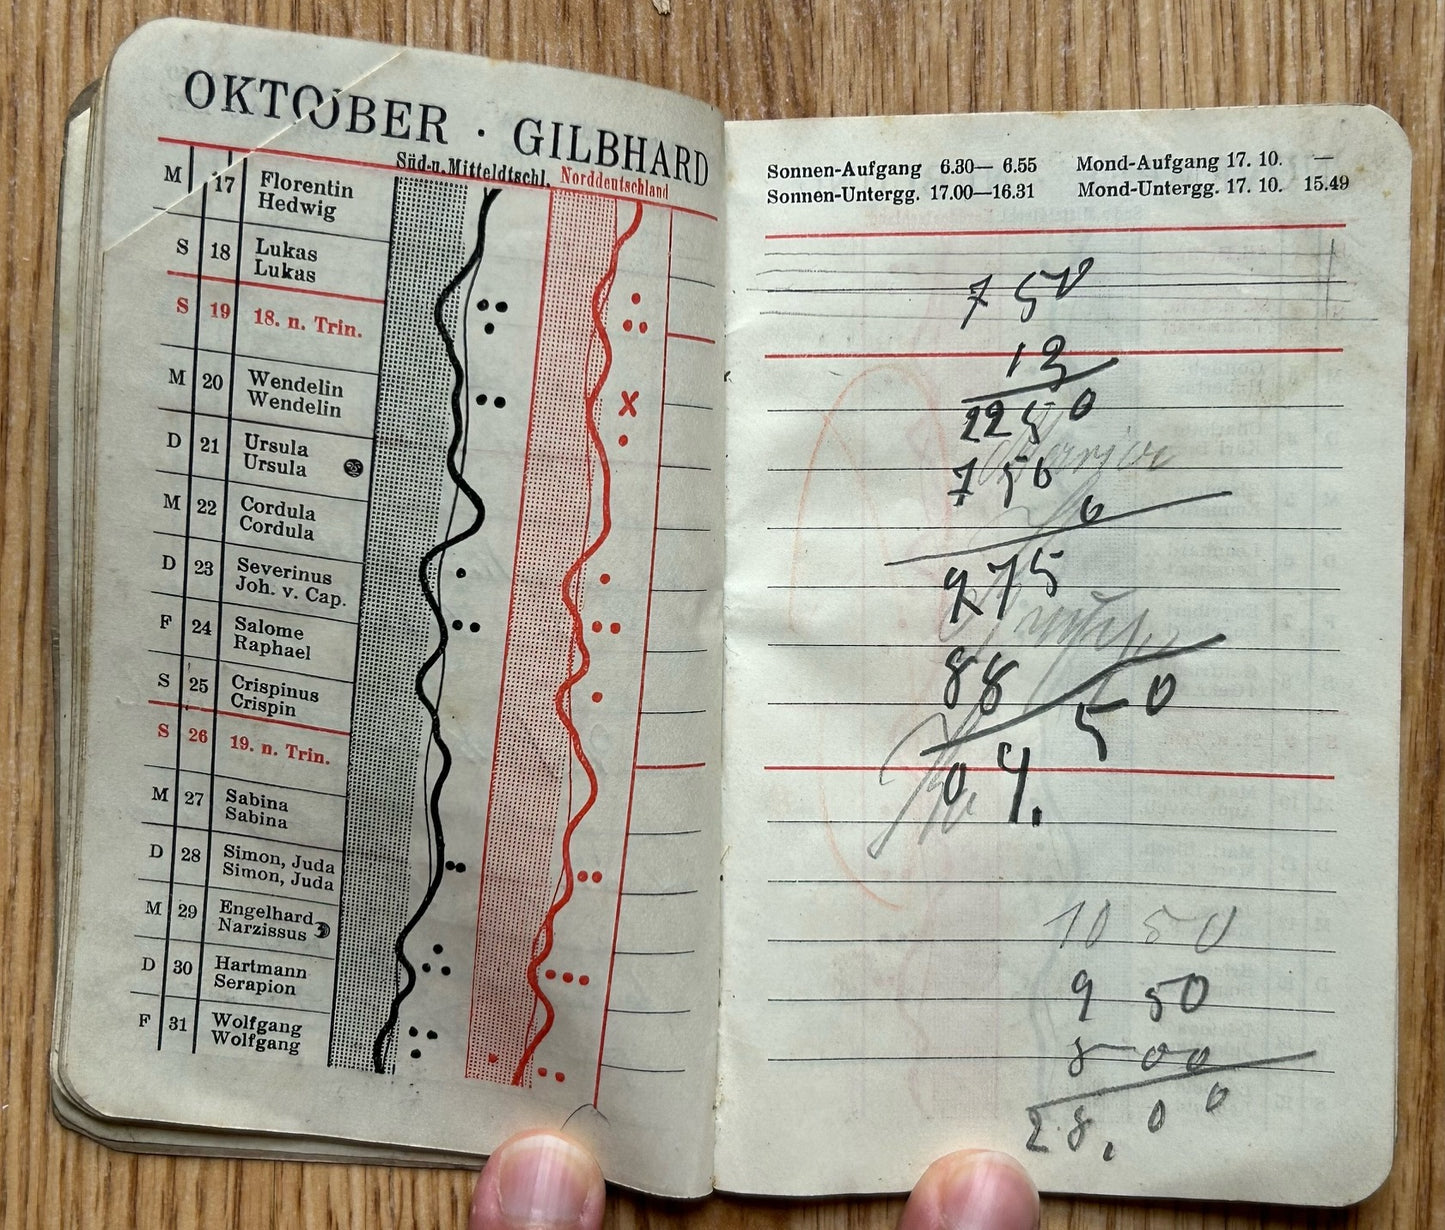 OKTOBER · GILBHARD
Süd-u. Mitteldtschl. Norddeutschland
M 17 Florentin
Hedwig
S 18 Lukas
Lukas
S 19 18. n. Trin.
M 20 Wendelin
Wendelin
D 21 Ursula
Ursula
M 22 Cordula
Cordula
D 23 Severinus
Joh. v. Cap.
F 24 Salome
Raphael
S 25 Crispinus
Crispin
S 26 19. n. Trin.
M 27 Sabina
Sabina
D 28 Simon, Juda
Simon, Juda
M 29 Engelhard
Narzissus
D 30 Hartmann
Serapion
F 31 Wolfgang
Wolfgang
Sonnen-Aufgang 6.30— 6.55 Mond-Aufgang 17. 10. —
Sonnen-Untergg. 17.00—16.31 Mond-Untergg. 17. 10. 15.49
7 50
13
2250
750
0
975
88
50
0.4.
10 50
9 50
8 00
28,00